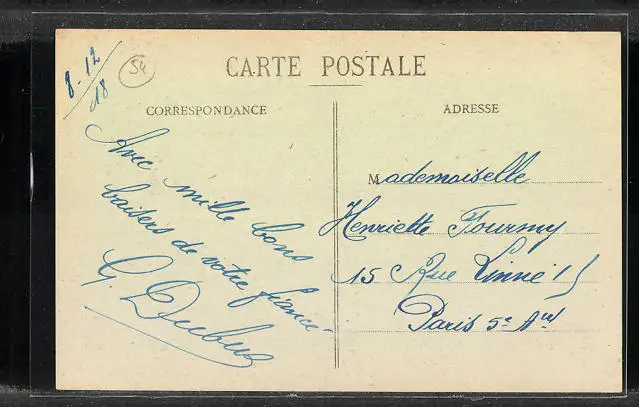 8-12
18
54
CARTE POSTALE
CORRESPONDANCE
Avec mille bons
baisers de votre fiancé
G. Dubus
ADRESSE
Mademoiselle
Henriette Fourmy
15 Rue Linné 15
Paris 5e Arr